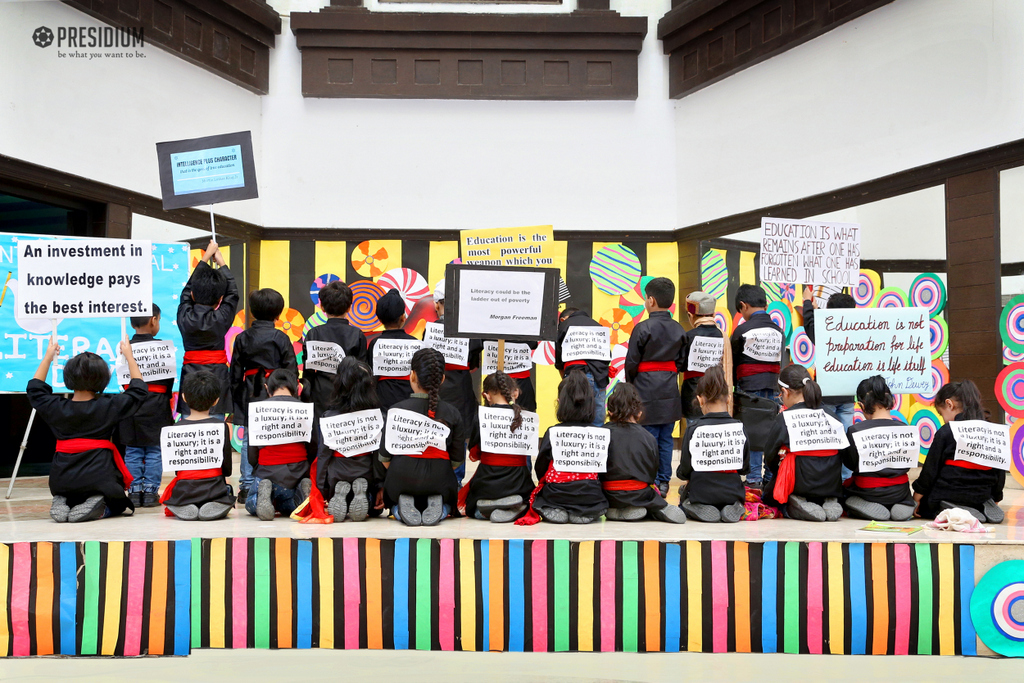 PRESIDIUM
be what you want to be.
INTELLIGENCE PLUS CHARACTER
that is the goal of true education
An investment in
knowledge pays
the best interest.
Education is the
most powerful
weapon which you
Literacy could be the
ladder out of poverty
Morgan Freeman
EDUCATION IS WHAT
REMAINS AFTER ONE HAS
FORGOTTEN WHAT ONE HAS
LEARNED IN SCHOOL
Education is not
preparation for life
education is life itself
John Dewey
Literacy is not
a luxury; it is a
right and a
Literacy is not
a luxury; it
right and
Literacy is not
a luxury; it is a
right and a
Literacy is not
a luxury; it is a
right and a
Literacy is not
a luxury; it is a
right and a
responsibility.
Literacy is not
a luxury; it is a
right and a
responsibility.
Literacy is not
a luxury; it is a
right and a
responsibility.
Literacy is not
a luxury; it is a
right and a
responsibility.
Literacy is not
a luxury; it is a
right and a
responsibility.
Literacy is not
a luxury; it is a
right and a
responsibility.
Literacy is not
a luxury; it is a
right and a
responsibility.
Literacy is not
a luxury; it is a
right and a
responsibility.
Literacy is not
a luxury; it is a
right and a
responsibility.
Literacy is not
a luxury; it is a
right and a
responsibility.
Literacy is not
a luxury; it is a
right and a
responsibility.